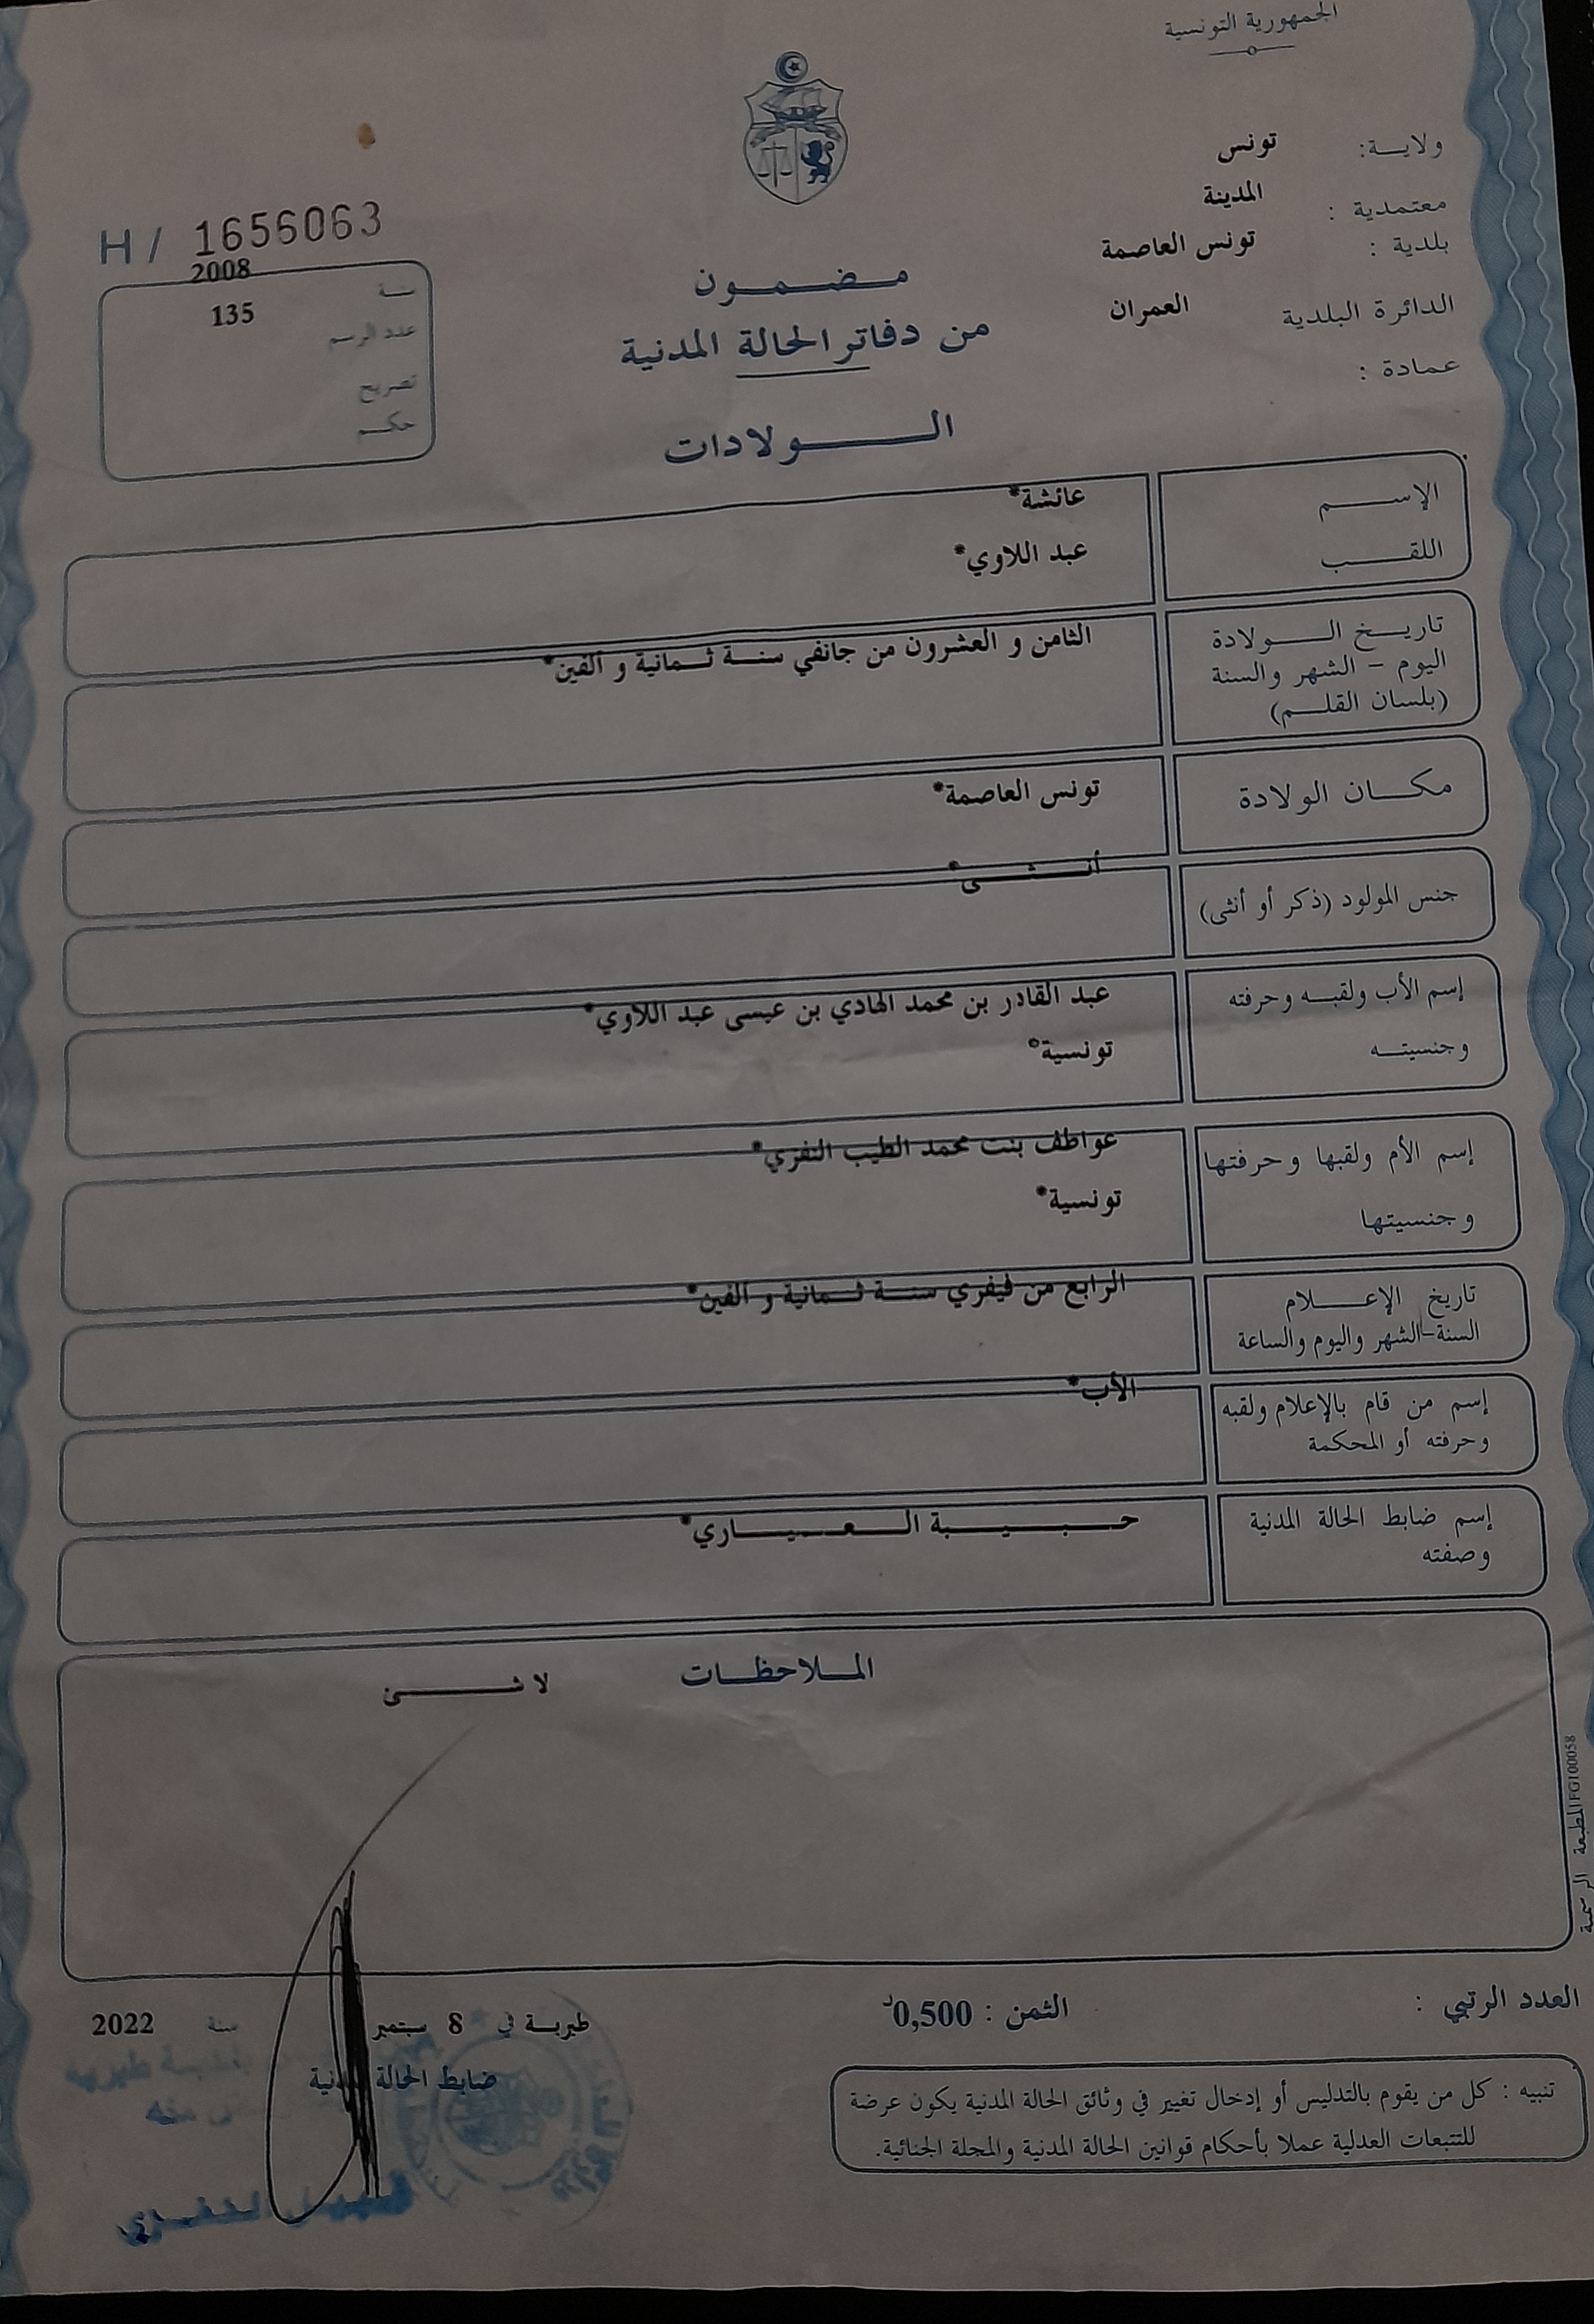 الجمهورية التونسية
ولاية: تونس
معتمدية : المدينة
بلدية : تونس العاصمة
الدائرة البلدية العمران
عمادة :
H / 1656063
سنة 2008
عدد الرسم 135
تصريح
حكم
مضمون
من دفاتر الحالة المدنية
الولادات
الإسم عائشة*
اللقب عبد اللاوي*
تاريخ الولادة الثامن و العشرون من جانفي سنة ثمانية و ألفين*
اليوم - الشهر والسنة
(بلسان القلم)
مكان الولادة تونس العاصمة*
جنس المولود (ذكر أو أنثى) أنثى*
إسم الأب ولقبه وحرفته عبد القادر بن محمد الهادي بن عيسى عبد اللاوي*
وجنسيته تونسية*
إسم الأم ولقبها وحرفتها عواطف بنت محمد الطيب النفزي*
وجنسيتها تونسية*
تاريخ الإعلام الرابع من فيفري سنة ثمانية و ألفين*
السنة-الشهر واليوم والساعة
إسم من قام بالإعلام ولقبه الأب*
وحرفته أو المحكمة
إسم ضابط الحالة المدنية حبيبة العياري*
وصفته
الملاحظات
لا شئ
المطبعة الرسمية IFG100058
العدد الرتبي :
الثمن : 0,500د
طبربة في 8 سبتمبر سنة 2022
ضابط الحالة المدنية
تنبيه : كل من يقوم بالتدليس أو إدخال تغيير في وثائق الحالة المدنية يكون عرضة
للتتبعات العدلية عملا بأحكام قوانين الحالة المدنية والمجلة الجنائية.